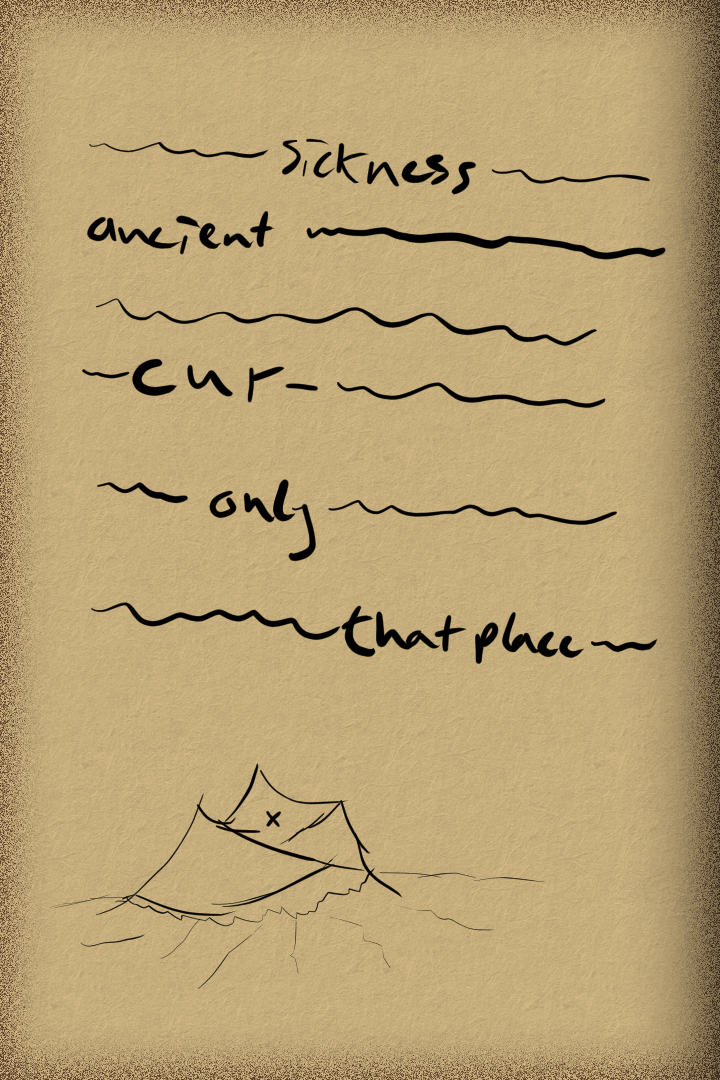 sickness
ancient
cur
only
that place
x